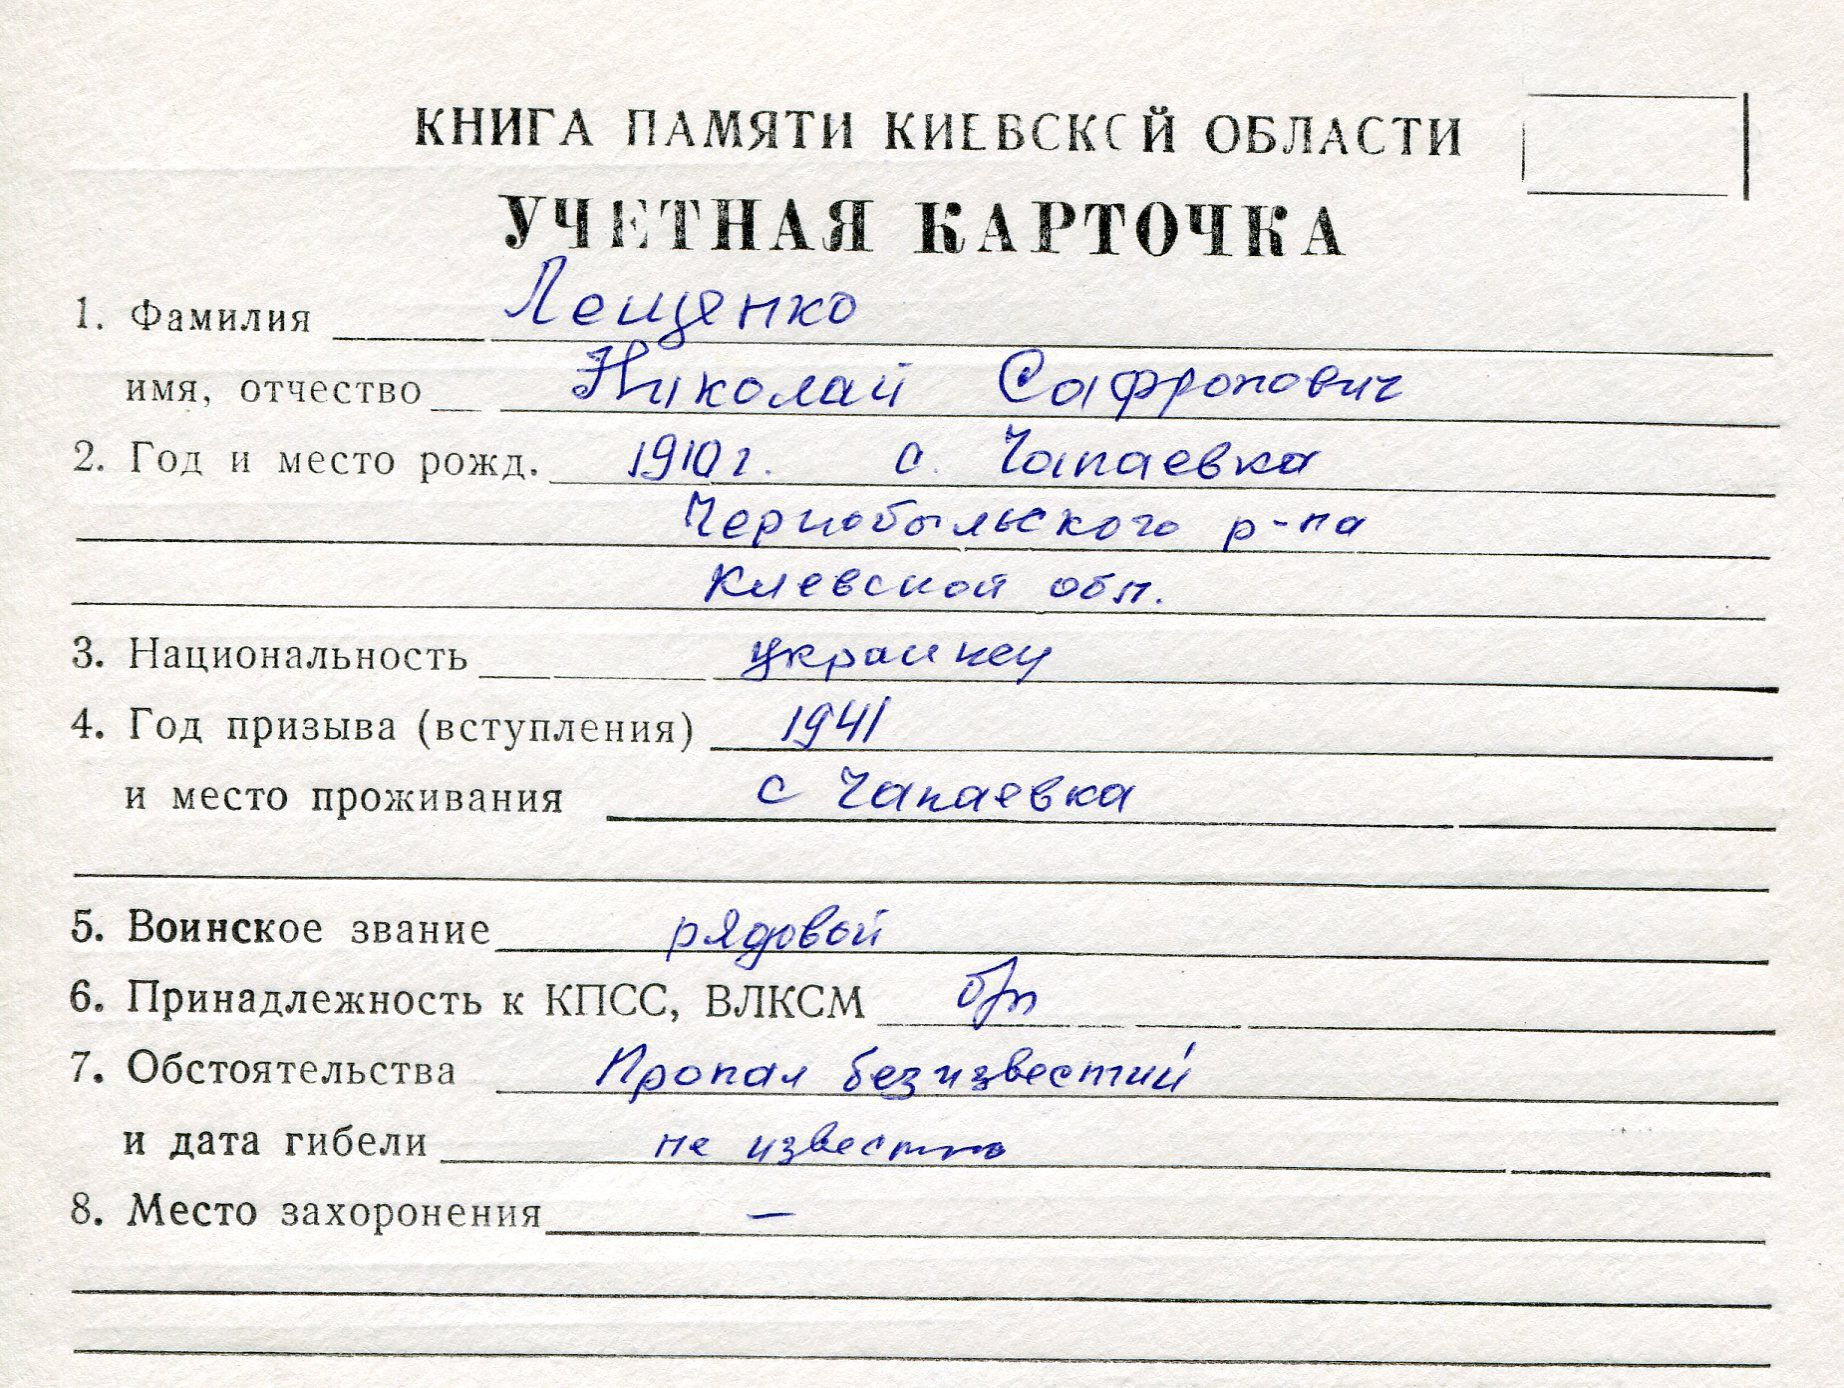 КНИГА ПАМЯТИ КИЕВСКОЙ ОБЛАСТИ
УЧЕТНАЯ КАРТОЧКА
1. Фамилия Лещенко
имя, отчество Николай Сафронович
2. Год и место рожд. 1910 г. с. Чапаевка
Чернобыльского р-на
Киевской обл.
3. Национальность украинец
4. Год призыва (вступления) 1941
и место проживания с Чапаевка
5. Воинское звание рядовой
6. Принадлежность к КПСС, ВЛКСМ б/п
7. Обстоятельства Пропал безизвестий
и дата гибели не известно
8. Место захоронения —